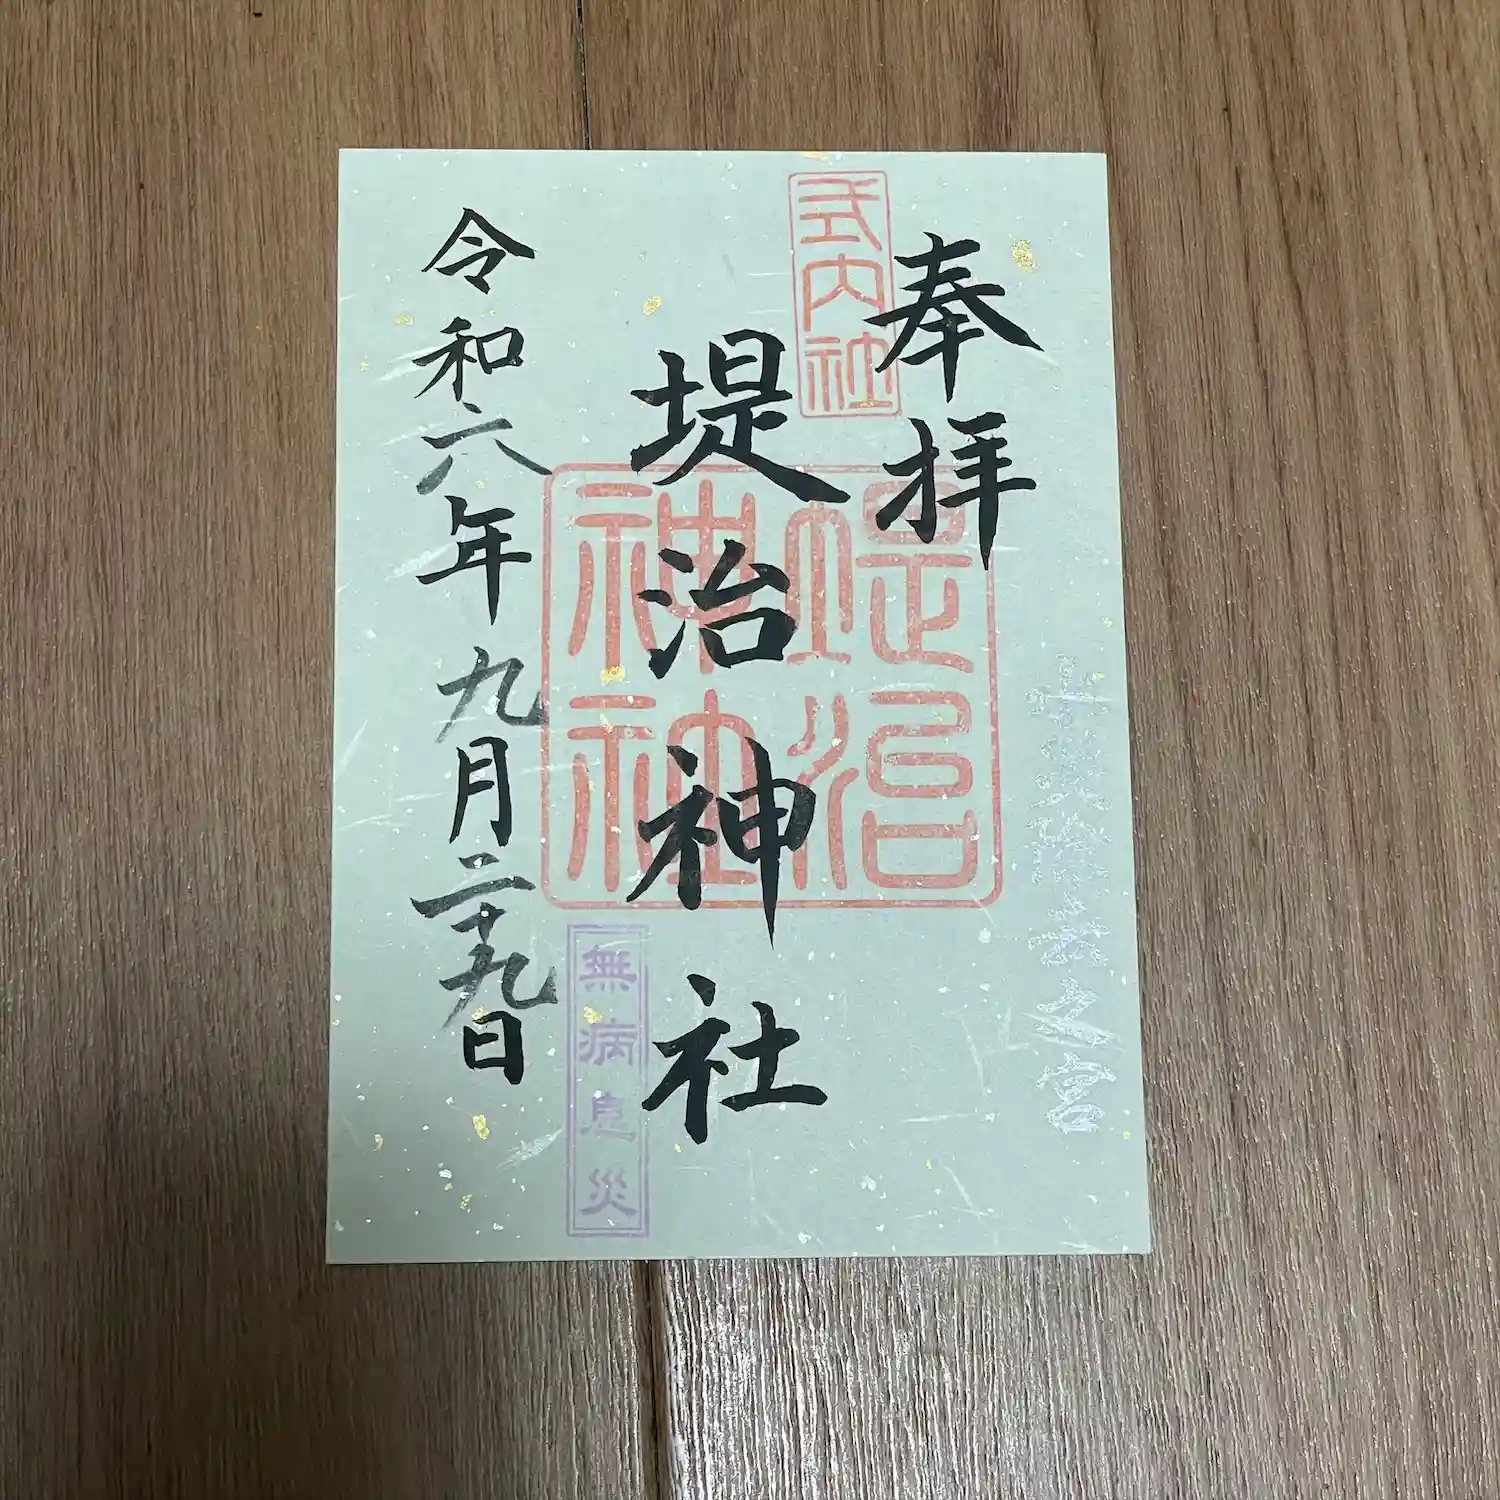 之宮
奉拝
式内社
堤治神社
堤治
神社
無病息災
令和六年九月二十九日